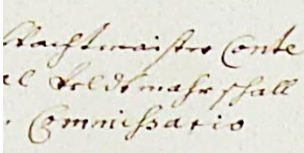 Wachtmaister Conte
al Feldtmahrschall
Commissario